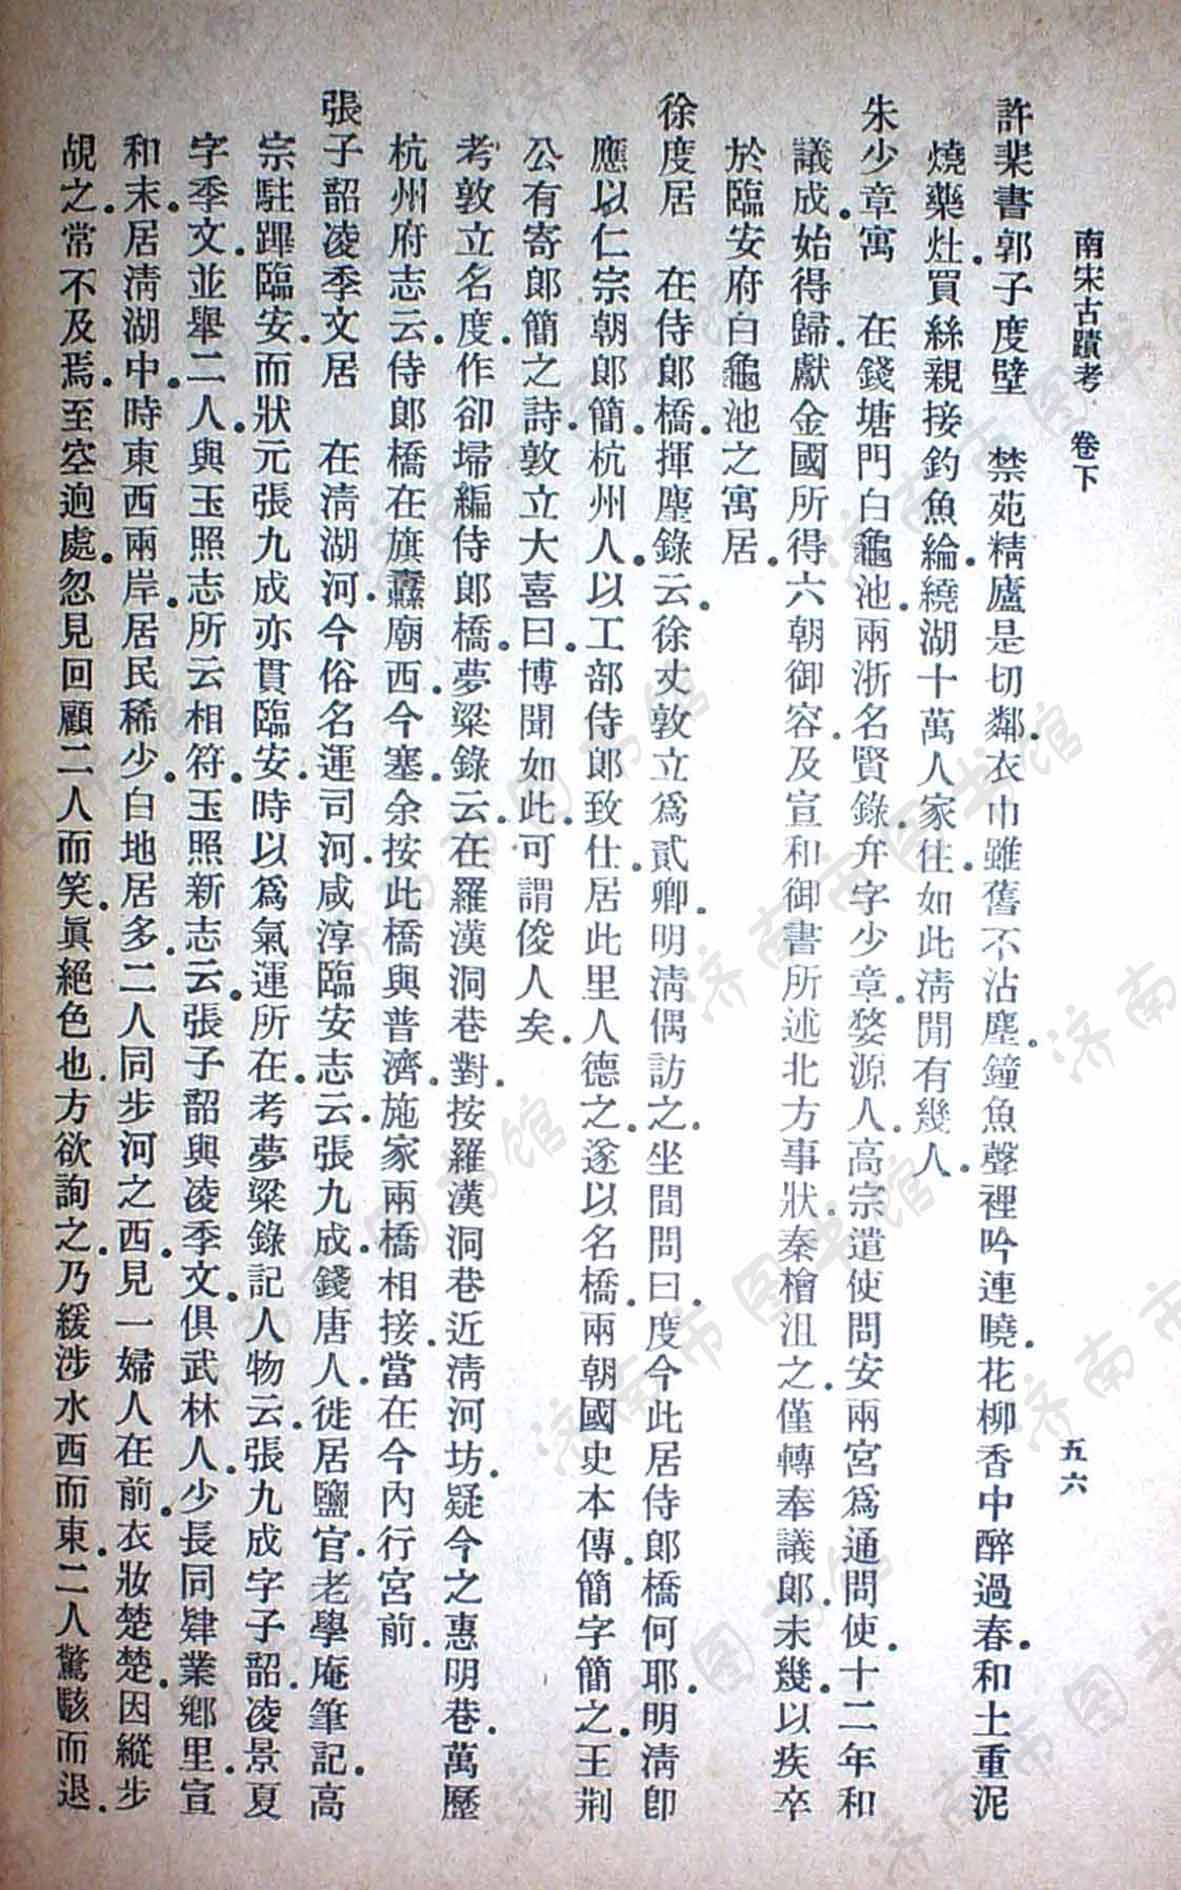 南宋古蹟考 卷下 五六
許棐書郭子度壁 禁苑精廬是切鄰衣巾雖舊不沾塵鐘魚聲裡吟連曉花柳香中醉過春和土重泥
燒藥灶買絲親接釣魚綸繞湖十萬人家住如此清閒有幾人
朱少章寓 在錢塘門白龜池兩浙名賢錄弁字少章婺源人高宗遣使問安兩宮為通問使十二年和
議成始得歸獻金國所得六朝御容及宣和御書所述北方事狀秦檜沮之僅轉奉議郎未幾以疾卒
於臨安府白龜池之寓居
徐度居 在侍郎橋揮麈錄云徐丈敦立為貳卿明清偶訪之坐間問曰度今此居侍郎橋何耶明清即
應以仁宗朝郎簡杭州人以工部侍郎致仕居此里人德之遂以名橋兩朝國史本傳簡字簡之王荆
公有寄郎簡之詩敦立大喜曰博聞如此可謂俊人矣
考敦立名度作卻埽編侍郎橋夢粱錄云在羅漢洞巷對按羅漢洞巷近清河坊疑今之惠明巷萬歷
杭州府志云侍郎橋在旗纛廟西今塞余按此橋與普濟施家兩橋相接當在今內行宮前
張子韶凌季文居 在清湖河今俗名運司河咸淳臨安志云張九成錢唐人徙居鹽官老學庵筆記高
宗駐蹕臨安而狀元張九成亦貫臨安時以為氣運所在考夢粱錄記人物云張九成字子韶凌景夏
字季文並舉二人與玉照志所云相符玉照新志云張子韶與凌季文俱武林人少長同肄業鄉里宣
和末居清湖中時東西兩岸居民稀少白地居多二人同步河之西見一婦人在前衣妝楚楚因縱步
覘之常不及焉至空迥處忽見回顧二人而笑眞絕色也方欲詢之乃緩涉水西而東二人驚駭而退